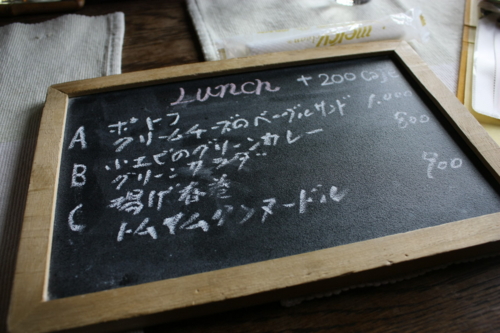 Lunch +200
A ポトフ
クリームチーズのベーグルサンド 1.000
B 小エビのグリーンカレー 800
グリーンサラダ
C 揚げ春巻 900
トムヤムクンヌードル